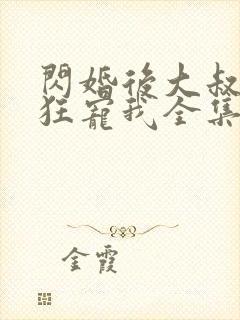 閃婚後大叔
狂寵我全集
金霞